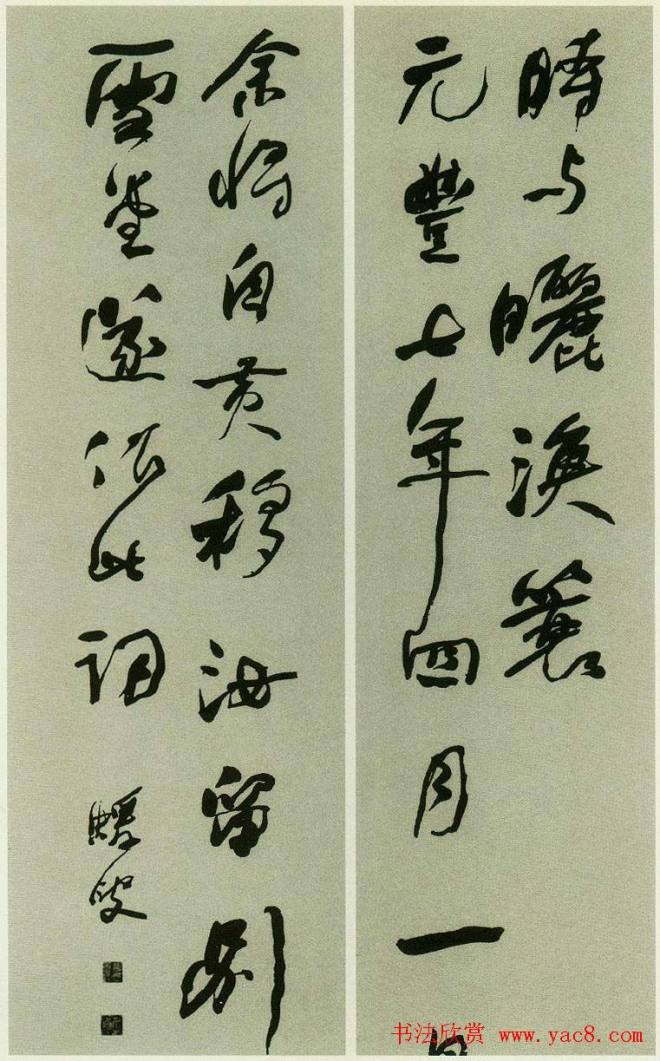 時与曬漁蓑
元豐七年四月一日
余将自黄移汝留別
雪堂遂作此詞 蝯叟
书法欣赏 www.yac8.com